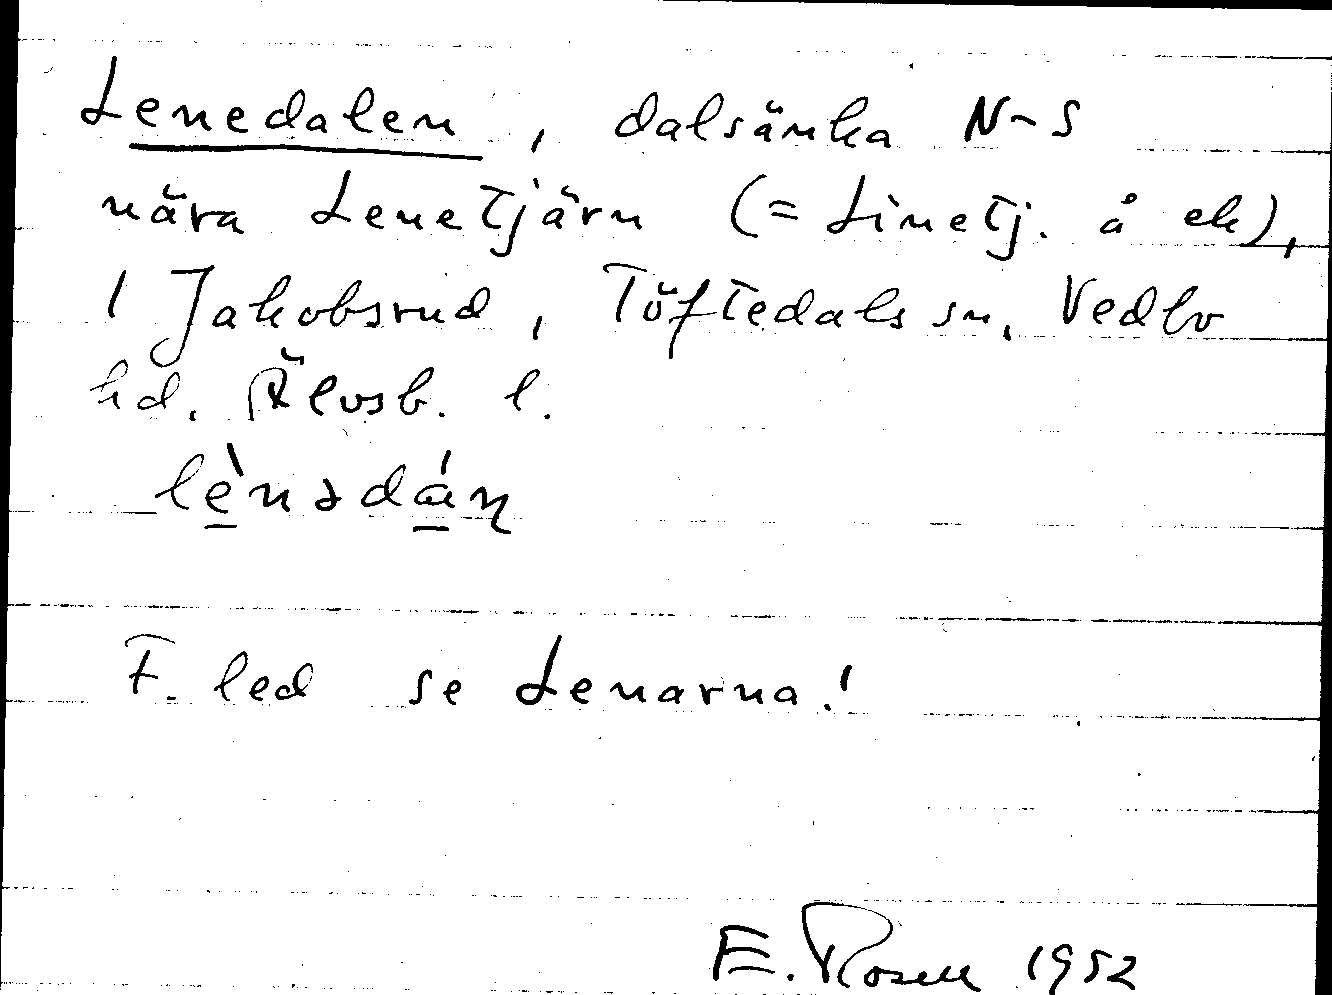 Lenedalen, dalsänka N-S
nära Lenetjärn (= Linetj. å ek),
1 Jakobsrud, Töftedals sn, Vedbo
hd. Älvsb. l.
lènədán
F. led se Lenarna!
E. Rosell 1952